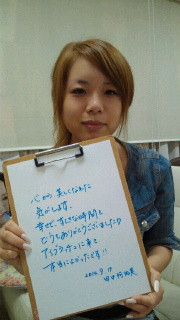 心から美しくなれた
気がします。
幸せで、すてきな時間を
どうもありがとうございました♡
アイブラッサンに来て
本当によかったです!!